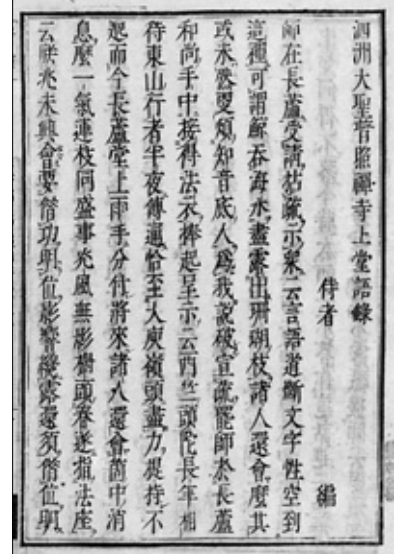 泗洲大聖普照禪寺上堂語錄
侍者 編
師在長蘆受請拈疏示衆云言語道斷文字性空到
這裡可謂鯨吞海水盡露出珊瑚枝諸人還會麼其
或未然要須知音底人爲我說破宣疏罷師於長蘆
和尚手中接得法衣捧起呈示云西竺頭陀長年相
待東山行者半夜傳逼恰至大庾嶺頭盡力提持不
起而今長蘆堂上兩手分付將來諸人還會箇中消
息麼一氣連枝同盛事光風無影樹頭春遂指法座
云朕兆未興會要借功明位影響纔露還須借位明